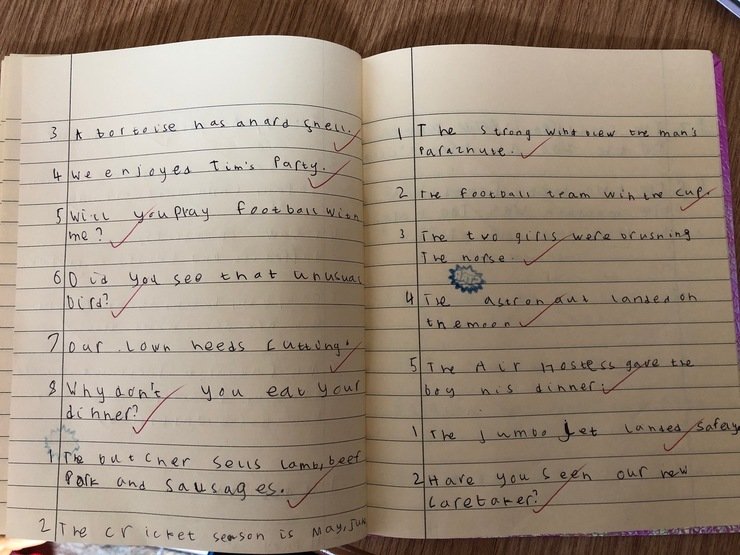 3 A tortoise has an ard shell.
4 We enjoyed Tim's Party.
5 Will you pray football with
me?
6 Did you see that unusual
bird?
7 Our lown needs cutting.
8 Why don't you eat your
dinner?
1 The butcher sells lamb, beef
Pork and sausages.
2 The cricket season is May, June
1 The strong wind blew the man's
parachute.
2 The football team win the cup.
3 The two girls were brushing
The horse.
4 The astronaut landed on
the moon
5 The Air Hostess gave the
boy his dinner.
1 The jumbo Jet landed safely
2 Have you seen our new
caretaker?